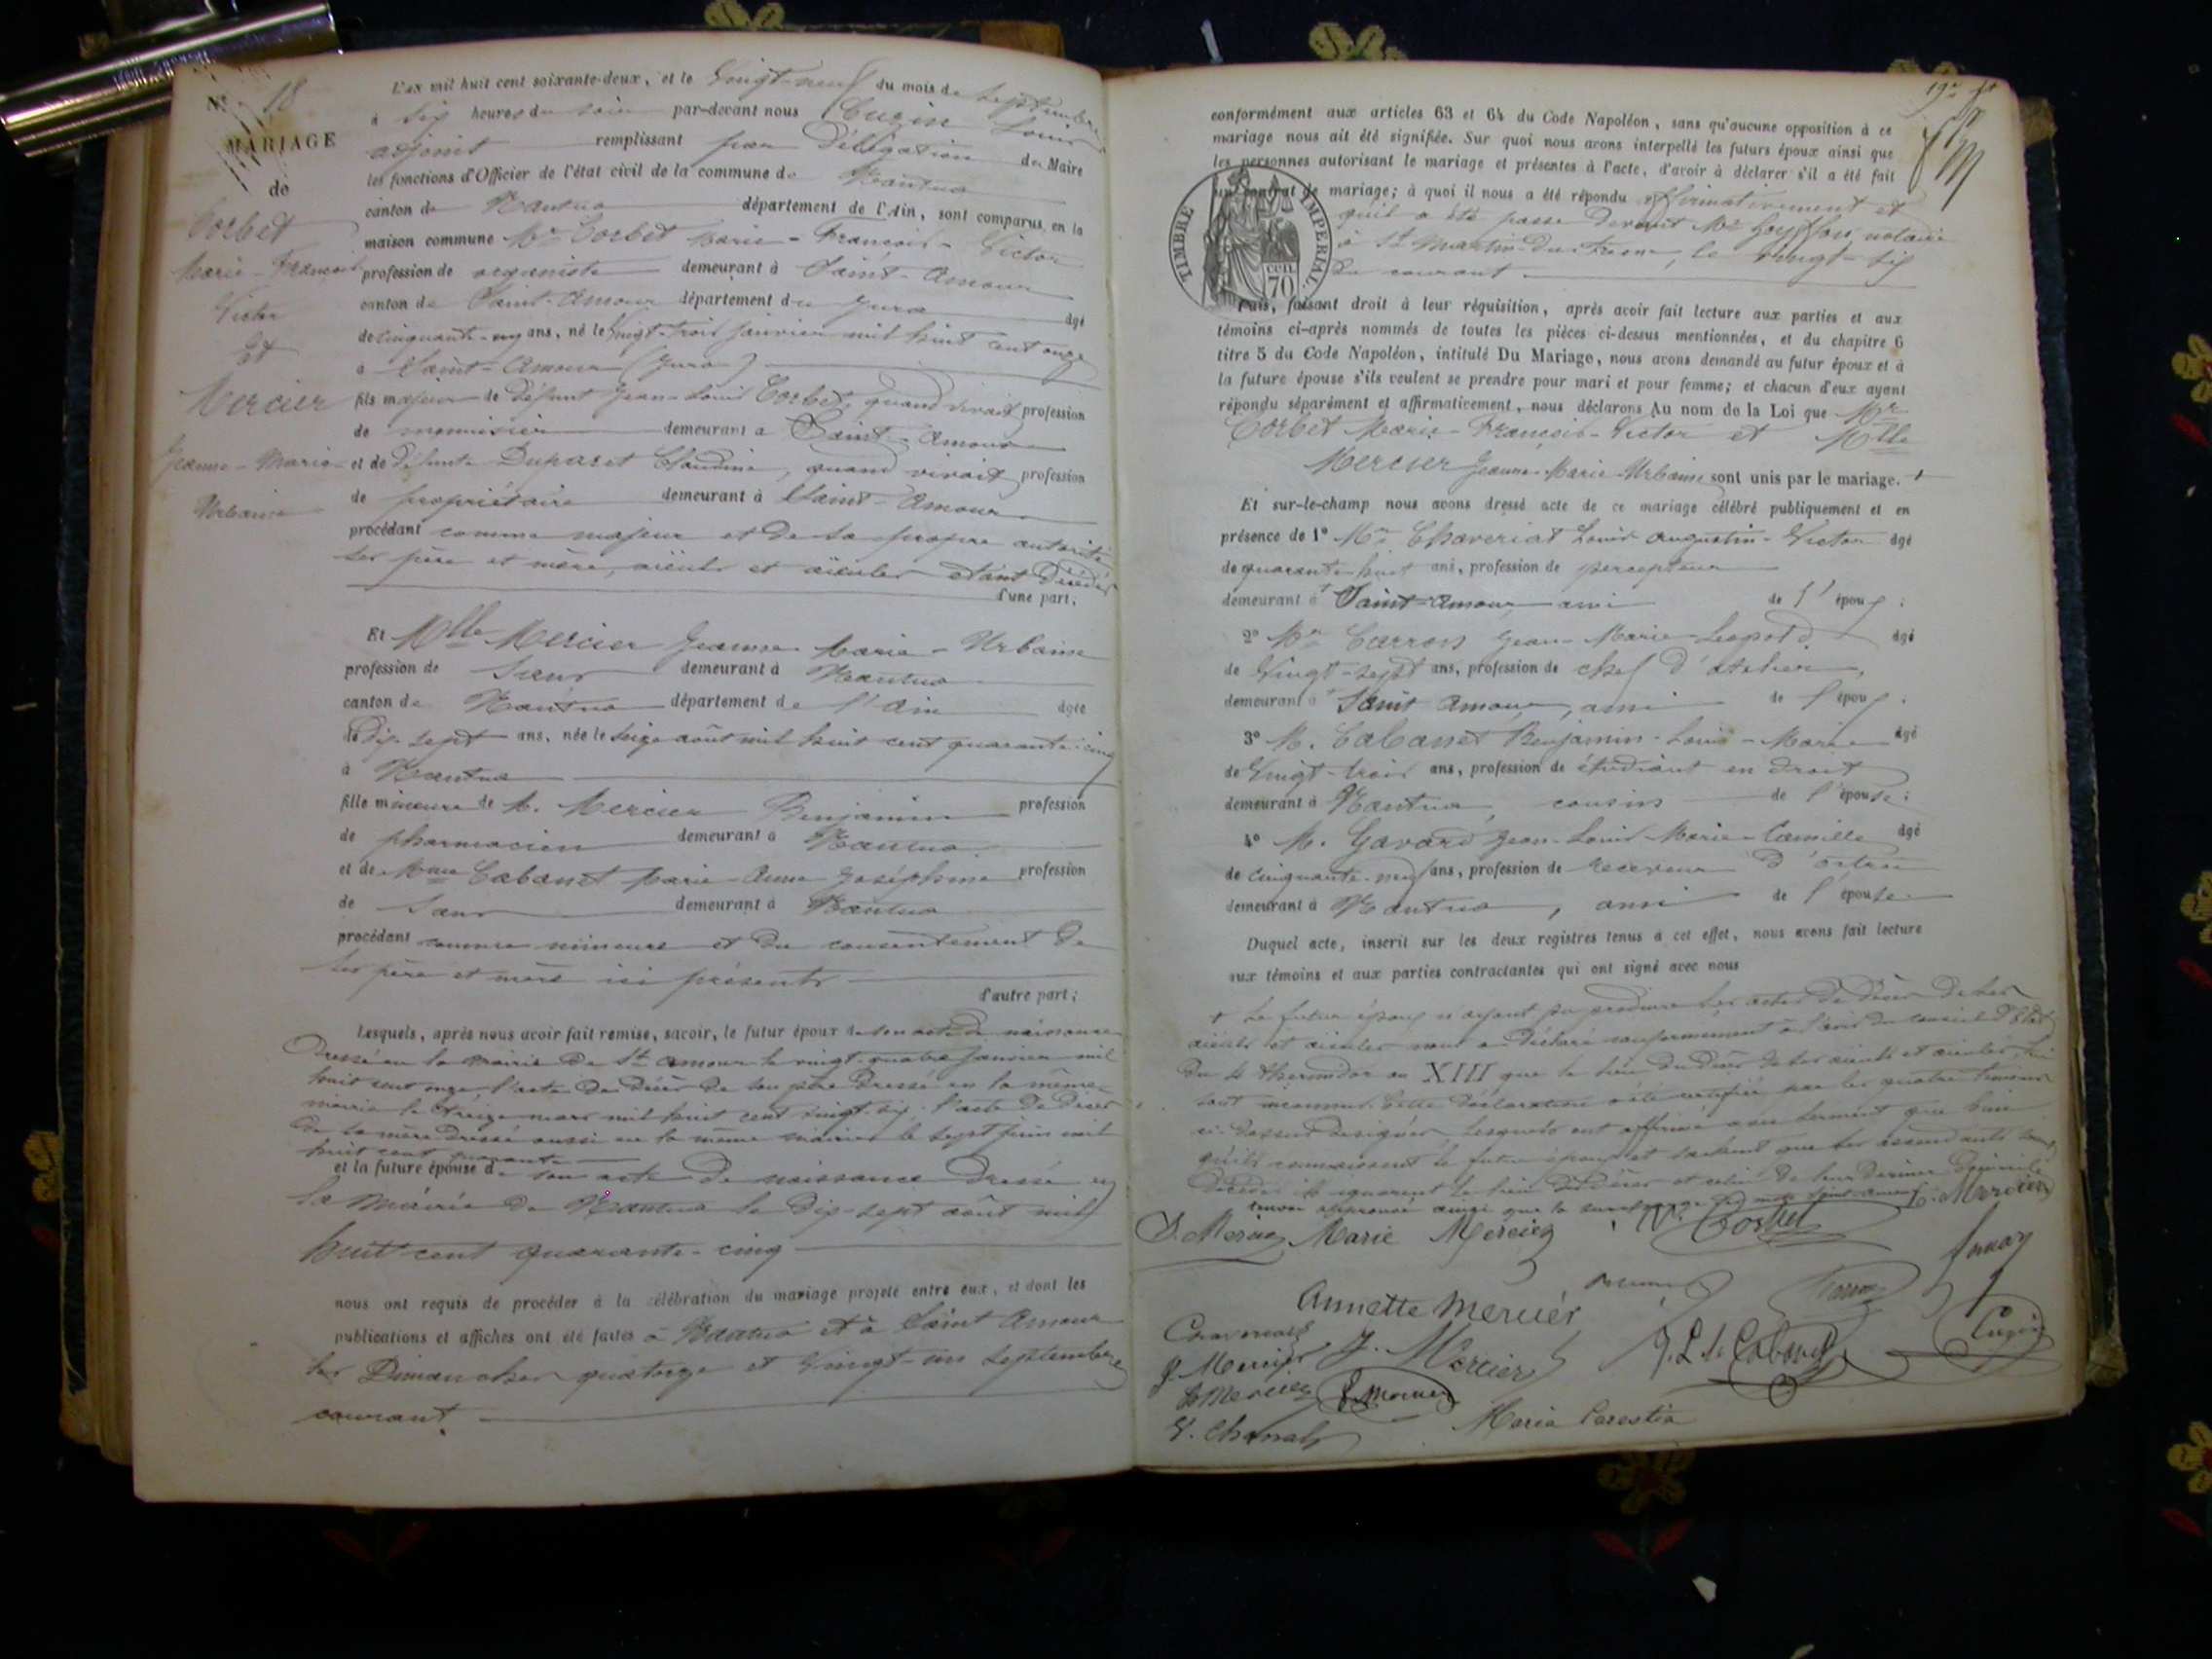 N° 18
MARIAGE
de
Corbet
Marie-François
Victor
Et
Mercier
Jeanne-Marie-
Urbaine
L'an mil huit cent soixante-deux, et le Vingt-neuf du mois de Septembre
à six heures du soir par-devant nous Cuzin Louis
adjoint remplissant par Délégation du Maire
les fonctions d'Officier de l'état civil de la commune de Nantua
canton de Nantua département de l'Ain, sont comparus, en la
maison commune Mr Corbet Marie-François-Victor
profession de organiste demeurant à Saint-Amour
canton de Saint-Amour département du Jura âgé
de cinquante-un ans, né le vingt-trois janvier mil huit cent onze
à Saint-Amour (Jura)
fils majeur de défunt Jean-Louis Corbet, quand vivait profession
de menuisier demeurant à Saint-Amour
et de défunte Duparet Claudine, quand vivait profession
de propriétaire demeurant à Saint-Amour
procédant comme majeur et de sa propre autorité
ses père et mère, aïeuls et aïeules étant décédés
d'une part;
Et Mlle Mercier Jeanne Marie-Urbaine
profession de sans demeurant à Nantua
canton de Nantua département de l'Ain âgée
de dix-sept ans, née le seize août mil huit cent quarante-cinq
à Nantua
fille mineure de M. Mercier Benjamin profession
de pharmacien demeurant à Nantua
et de Mme Cabanet Marie-Anne Joséphine profession
de sans demeurant à Nantua
procédant comme mineure et du consentement de
ses père et mère ici présents
d'autre part;
Lesquels, après nous avoir fait remise, savoir, le futur époux de son acte de naissance
dressé en la mairie de St Amour le vingt-quatre janvier mil
huit cent onze, l'acte de décès de son père dressé en la même
mairie le treize mars mil huit cent vingt-six. l'acte de décès
de sa mère dressé aussi en la même mairie le sept juin mil
huit cent quarante
et la future épouse de son acte de naissance dressé en
la Mairie de Nantua le dix-sept août mil
huit cent quarante-cinq
nous ont requis de procéder à la célébration du mariage projeté entre eux, et dont les
publications et affiches ont été faites à Nantua et à Saint Amour
les Dimanches quatorze et vingt-un septembre
courant.
conformément aux articles 63 et 64 du Code Napoléon, sans qu'aucune opposition à ce
mariage nous ait été signifiée. Sur quoi nous avons interpellé les futurs époux ainsi que
les personnes autorisant le mariage et présentes à l'acte, d'avoir à déclarer s'il a été fait
un contrat de mariage; à quoi il nous a été répondu affirmativement et
qu'il a été passé devant Me Goyffon notaire
à St Martin-du-Fresne, le vingt-six
du courant
TIMBRE IMPERIAL
70 CEN
Puis, faisant droit à leur réquisition, après avoir fait lecture aux parties et aux
témoins ci-après nommés de toutes les pièces ci-dessus mentionnées, et du chapitre 6
titre 5 du Code Napoléon, intitulé Du Mariage, nous avons demandé au futur époux et à
la future épouse s'ils veulent se prendre pour mari et pour femme; et chacun d'eux ayant
répondu séparément et affirmativement, nous déclarons Au nom de la Loi que Mr
Corbet Marie-François-Victor et Mlle
Mercier Jeanne-Marie-Urbaine sont unis par le mariage. +
Et sur-le-champ nous avons dressé acte de ce mariage célébré publiquement et en
présence de 1° Mr Chaveriat Louis Augustin-Victor âgé
de quarante huit ans, profession de percepteur
demeurant à Saint-Amour ami de l'époux;
2° Mr Carron Jean-Marie-Léopold âgé
de vingt-sept ans, profession de chef d'atelier,
demeurant à Saint Amour, ami de l'époux;
3° M. Cabanet Benjamin-Louis-Marie âgé
de vingt-trois ans, profession de étudiant en droit
demeurant à Nantua, cousin de l'épouse;
4° M. Gavard Jean-Louis-Marie-Camille âgé
de cinquante-neuf ans, profession de receveur d'octroi
demeurant à Nantua, ami de l'épouse
Duquel acte, inscrit sur les deux registres tenus à cet effet, nous avons fait lecture
aux témoins et aux parties contractantes qui ont signé avec nous
+ Le futur époux n'ayant pu produire les actes de décès de ses
aïeuls et aïeules nous a déclaré conformément à l'avis du conseil d'Etat
du 4 thermidor an XIII que le lieu du décès de ses aïeuls et aïeules lui
sont inconnus. Cette déclaration a été certifiée par les quatre témoins
ci-dessus désignés, lesquels ont affirmé avec serment que bien
qu'ils connaissent le futur époux et sachent que ses ascendants sont
décédés ils ignorent le lieu du décès et celui de leur dernier domicile
Marie Mercier
Corbet
Annette Mercier
J. Mercier
Cuzin
Maria Carestia